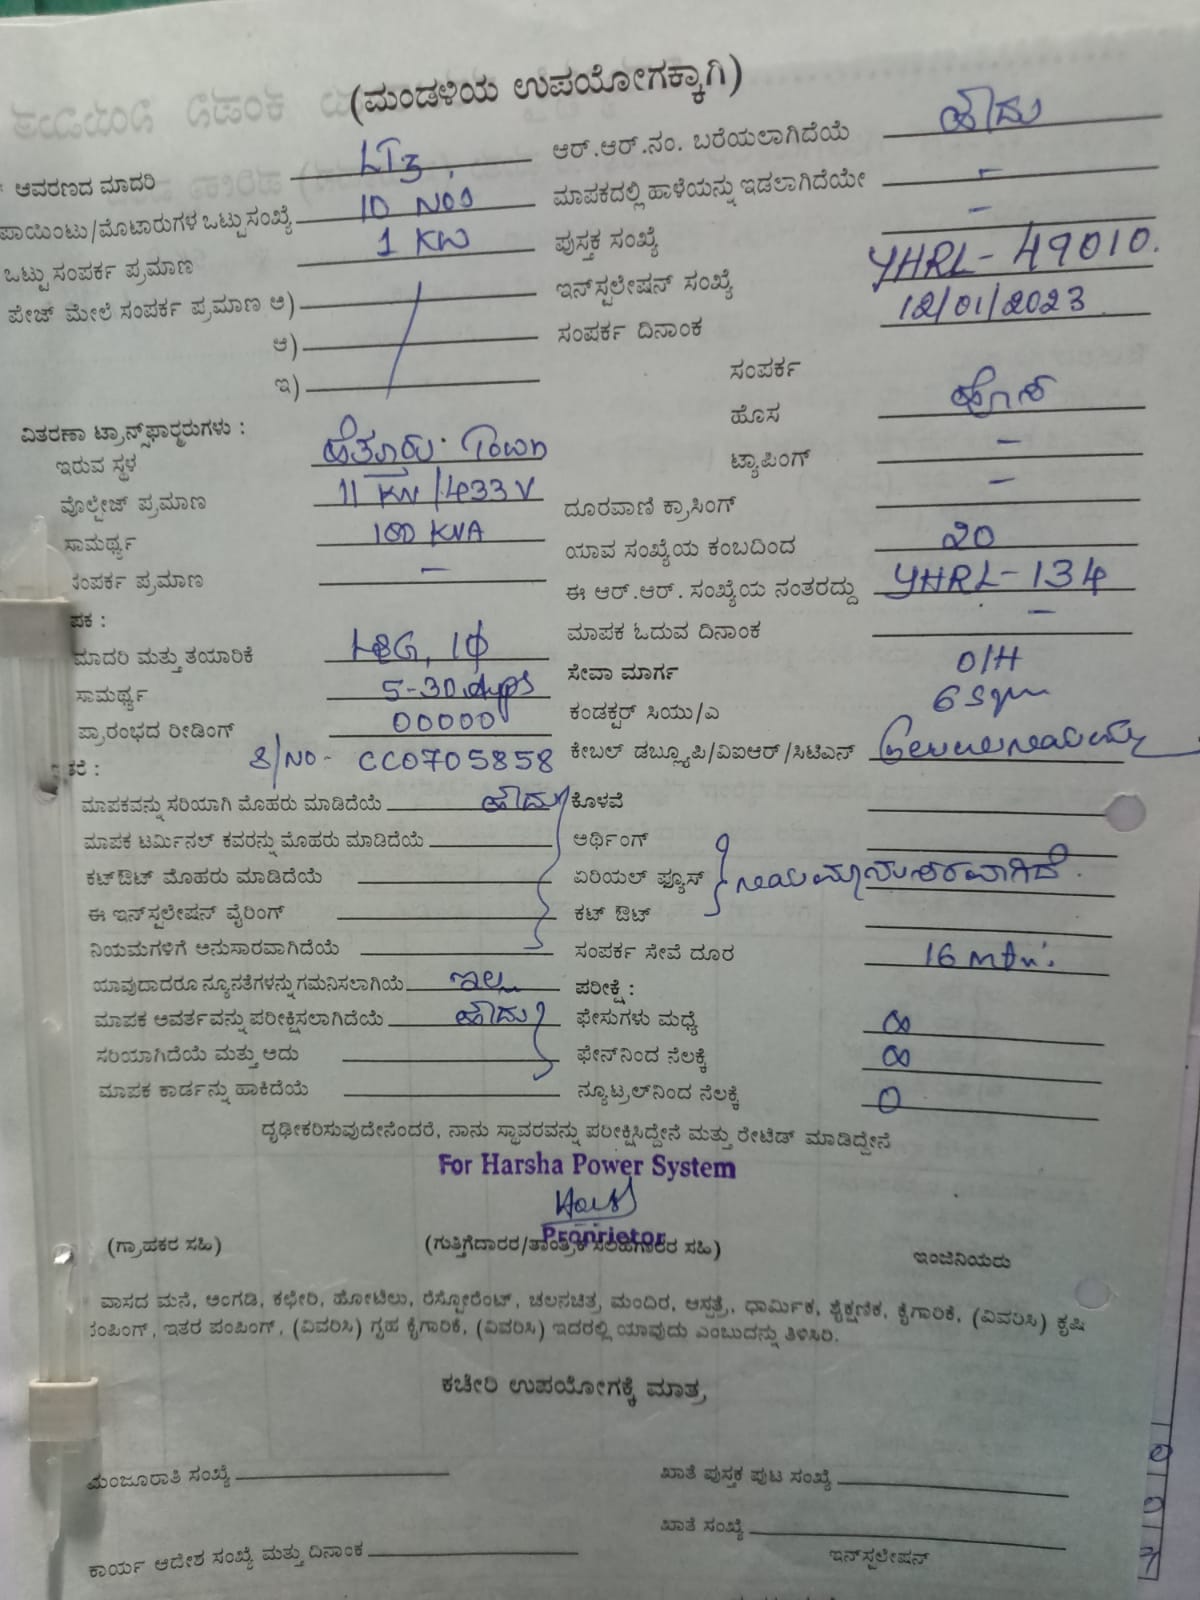 (ಮಂಡಳಿಯ ಉಪಯೋಗಕ್ಕಾಗಿ)
ಆವರಣದ ಮಾದರಿ LT3 ಆರ್.ಆರ್.ನಂ. ಬರೆಯಲಾಗಿದೆಯೆ ಹೌದು
ಪಾಯಿಂಟು/ಮೊಟಾರುಗಳ ಒಟ್ಟು ಸಂಖ್ಯೆ 10 Nos ಮಾಪಕದಲ್ಲಿ ಹಾಳೆಯನ್ನು ಇಡಲಾಗಿದೆಯೇ -
ಒಟ್ಟು ಸಂಪರ್ಕ ಪ್ರಮಾಣ 1 KW ಪುಸ್ತಕ ಸಂಖ್ಯೆ -
ಪೇಜ್ ಮೇಲೆ ಸಂಪರ್ಕ ಪ್ರಮಾಣ ಅ) ಇನ್‌ಸ್ಟಲೇಷನ್ ಸಂಖ್ಯೆ YHRL-49010.
ಆ) ಸಂಪರ್ಕ ದಿನಾಂಕ 12/01/2023
ಇ) ಸಂಪರ್ಕ
ಹೊಸ ಹೊಸ
ವಿತರಣಾ ಟ್ರಾನ್ಸ್‌ಫಾರ್ಮರುಗಳು :
ಇರುವ ಸ್ಥಳ ಹೆತ್ತೂರು Town ಟ್ಯಾಪಿಂಗ್ -
ವೊಲ್ಟೇಜ್ ಪ್ರಮಾಣ 11 KV/433V ದೂರವಾಣಿ ಕ್ರಾಸಿಂಗ್ -
ಸಾಮರ್ಥ್ಯ 100 KVA ಯಾವ ಸಂಖ್ಯೆಯ ಕಂಬದಿಂದ 20
ಸಂಪರ್ಕ ಪ್ರಮಾಣ - ಈ ಆರ್.ಆರ್. ಸಂಖ್ಯೆಯ ನಂತರದ್ದು YHRL-134
ಪಕ : ಮಾಪಕ ಓದುವ ದಿನಾಂಕ -
ಮಾದರಿ ಮತ್ತು ತಯಾರಿಕೆ L&G, 1ϕ ಸೇವಾ ಮಾರ್ಗ O/H
ಸಾಮರ್ಥ್ಯ 5-30 Amps ಕಂಡಕ್ಟರ್ ಸಿಯು/ಎ 6 Sqm
ಪ್ರಾರಂಭದ ರೀಡಿಂಗ್ 00000 ಕೇಬಲ್ ಡಬ್ಲ್ಯೂಪಿ/ವಿಐಆರ್/ಸಿಟಿಎನ್
S/NO- CC0705858
ಮಾಪಕವನ್ನು ಸರಿಯಾಗಿ ಮೊಹರು ಮಾಡಿದೆಯೆ ಹೌದು ಕೊಳವೆ
ಮಾಪಕ ಟರ್ಮಿನಲ್ ಕವರನ್ನು ಮೊಹರು ಮಾಡಿದೆಯೆ ಅರ್ಥಿಂಗ್
ಕಟ್‌ಔಟ್ ಮೊಹರು ಮಾಡಿದೆಯೆ ಏರಿಯಲ್ ಫ್ಯೂಸ್ ನಿಯಮಾನುಸಾರವಾಗಿದೆ.
ಈ ಇನ್‌ಸ್ಟಲೇಷನ್ ವೈರಿಂಗ್ ಕಟ್ ಔಟ್
ನಿಯಮಗಳಿಗೆ ಅನುಸಾರವಾಗಿದೆಯೆ ಸಂಪರ್ಕ ಸೇವೆ ದೂರ 16 mtr.
ಯಾವುದಾದರೂ ನ್ಯೂನತೆಗಳನ್ನು ಗಮನಿಸಲಾಗಿಯೆ ಇಲ್ಲ ಪರೀಕ್ಷೆ :
ಮಾಪಕ ಅವರ್ತವನ್ನು ಪರೀಕ್ಷಿಸಲಾಗಿದೆಯೆ ಹೌದು ಫೇಸುಗಳು ಮಧ್ಯೆ ∞
ಸರಿಯಾಗಿದೆಯೆ ಮತ್ತು ಅದು ಫೇಸ್‌ನಿಂದ ನೆಲಕ್ಕೆ ∞
ಮಾಪಕ ಕಾರ್ಡನ್ನು ಹಾಕಿದೆಯೆ ನ್ಯೂಟ್ರಲ್‌ನಿಂದ ನೆಲಕ್ಕೆ 0
ದೃಢೀಕರಿಸುವುದೇನೆಂದರೆ, ನಾನು ಸ್ಥಾವರವನ್ನು ಪರೀಕ್ಷಿಸಿದ್ದೇನೆ ಮತ್ತು ರೇಟೆಡ್ ಮಾಡಿದ್ದೇನೆ
For Harsha Power System
Proprietor
(ಗ್ರಾಹಕರ ಸಹಿ) (ಗುತ್ತಿಗೆದಾರರ/ತಾಂತ್ರಿಕ ಸಲಹೆಗಾರರ ಸಹಿ) ಇಂಜಿನಿಯರು
ವಾಸದ ಮನೆ, ಅಂಗಡಿ, ಕಛೇರಿ, ಹೋಟೆಲು, ರೆಸ್ಟೋರೆಂಟ್, ಚಲನಚಿತ್ರ ಮಂದಿರ, ಆಸ್ಪತ್ರೆ, ಧಾರ್ಮಿಕ, ಶೈಕ್ಷಣಿಕ, ಕೈಗಾರಿಕೆ, (ವಿವರಿಸಿ) ಕೃಷಿ
ಪಂಪಿಂಗ್, ಇತರ ಪಂಪಿಂಗ್, (ವಿವರಿಸಿ) ಗೃಹ ಕೈಗಾರಿಕೆ, (ವಿವರಿಸಿ) ಇದರಲ್ಲಿ ಯಾವುದು ಎಂಬುದನ್ನು ತಿಳಿಸಿರಿ.
ಕಚೇರಿ ಉಪಯೋಗಕ್ಕೆ ಮಾತ್ರ
ಮಂಜೂರಾತಿ ಸಂಖ್ಯೆ ಖಾತೆ ಪುಸ್ತಕ ಪುಟ ಸಂಖ್ಯೆ
ಖಾತೆ ಸಂಖ್ಯೆ
ಕಾರ್ಯ ಆದೇಶ ಸಂಖ್ಯೆ ಮತ್ತು ದಿನಾಂಕ ಇನ್‌ಸ್ಟಲೇಷನ್